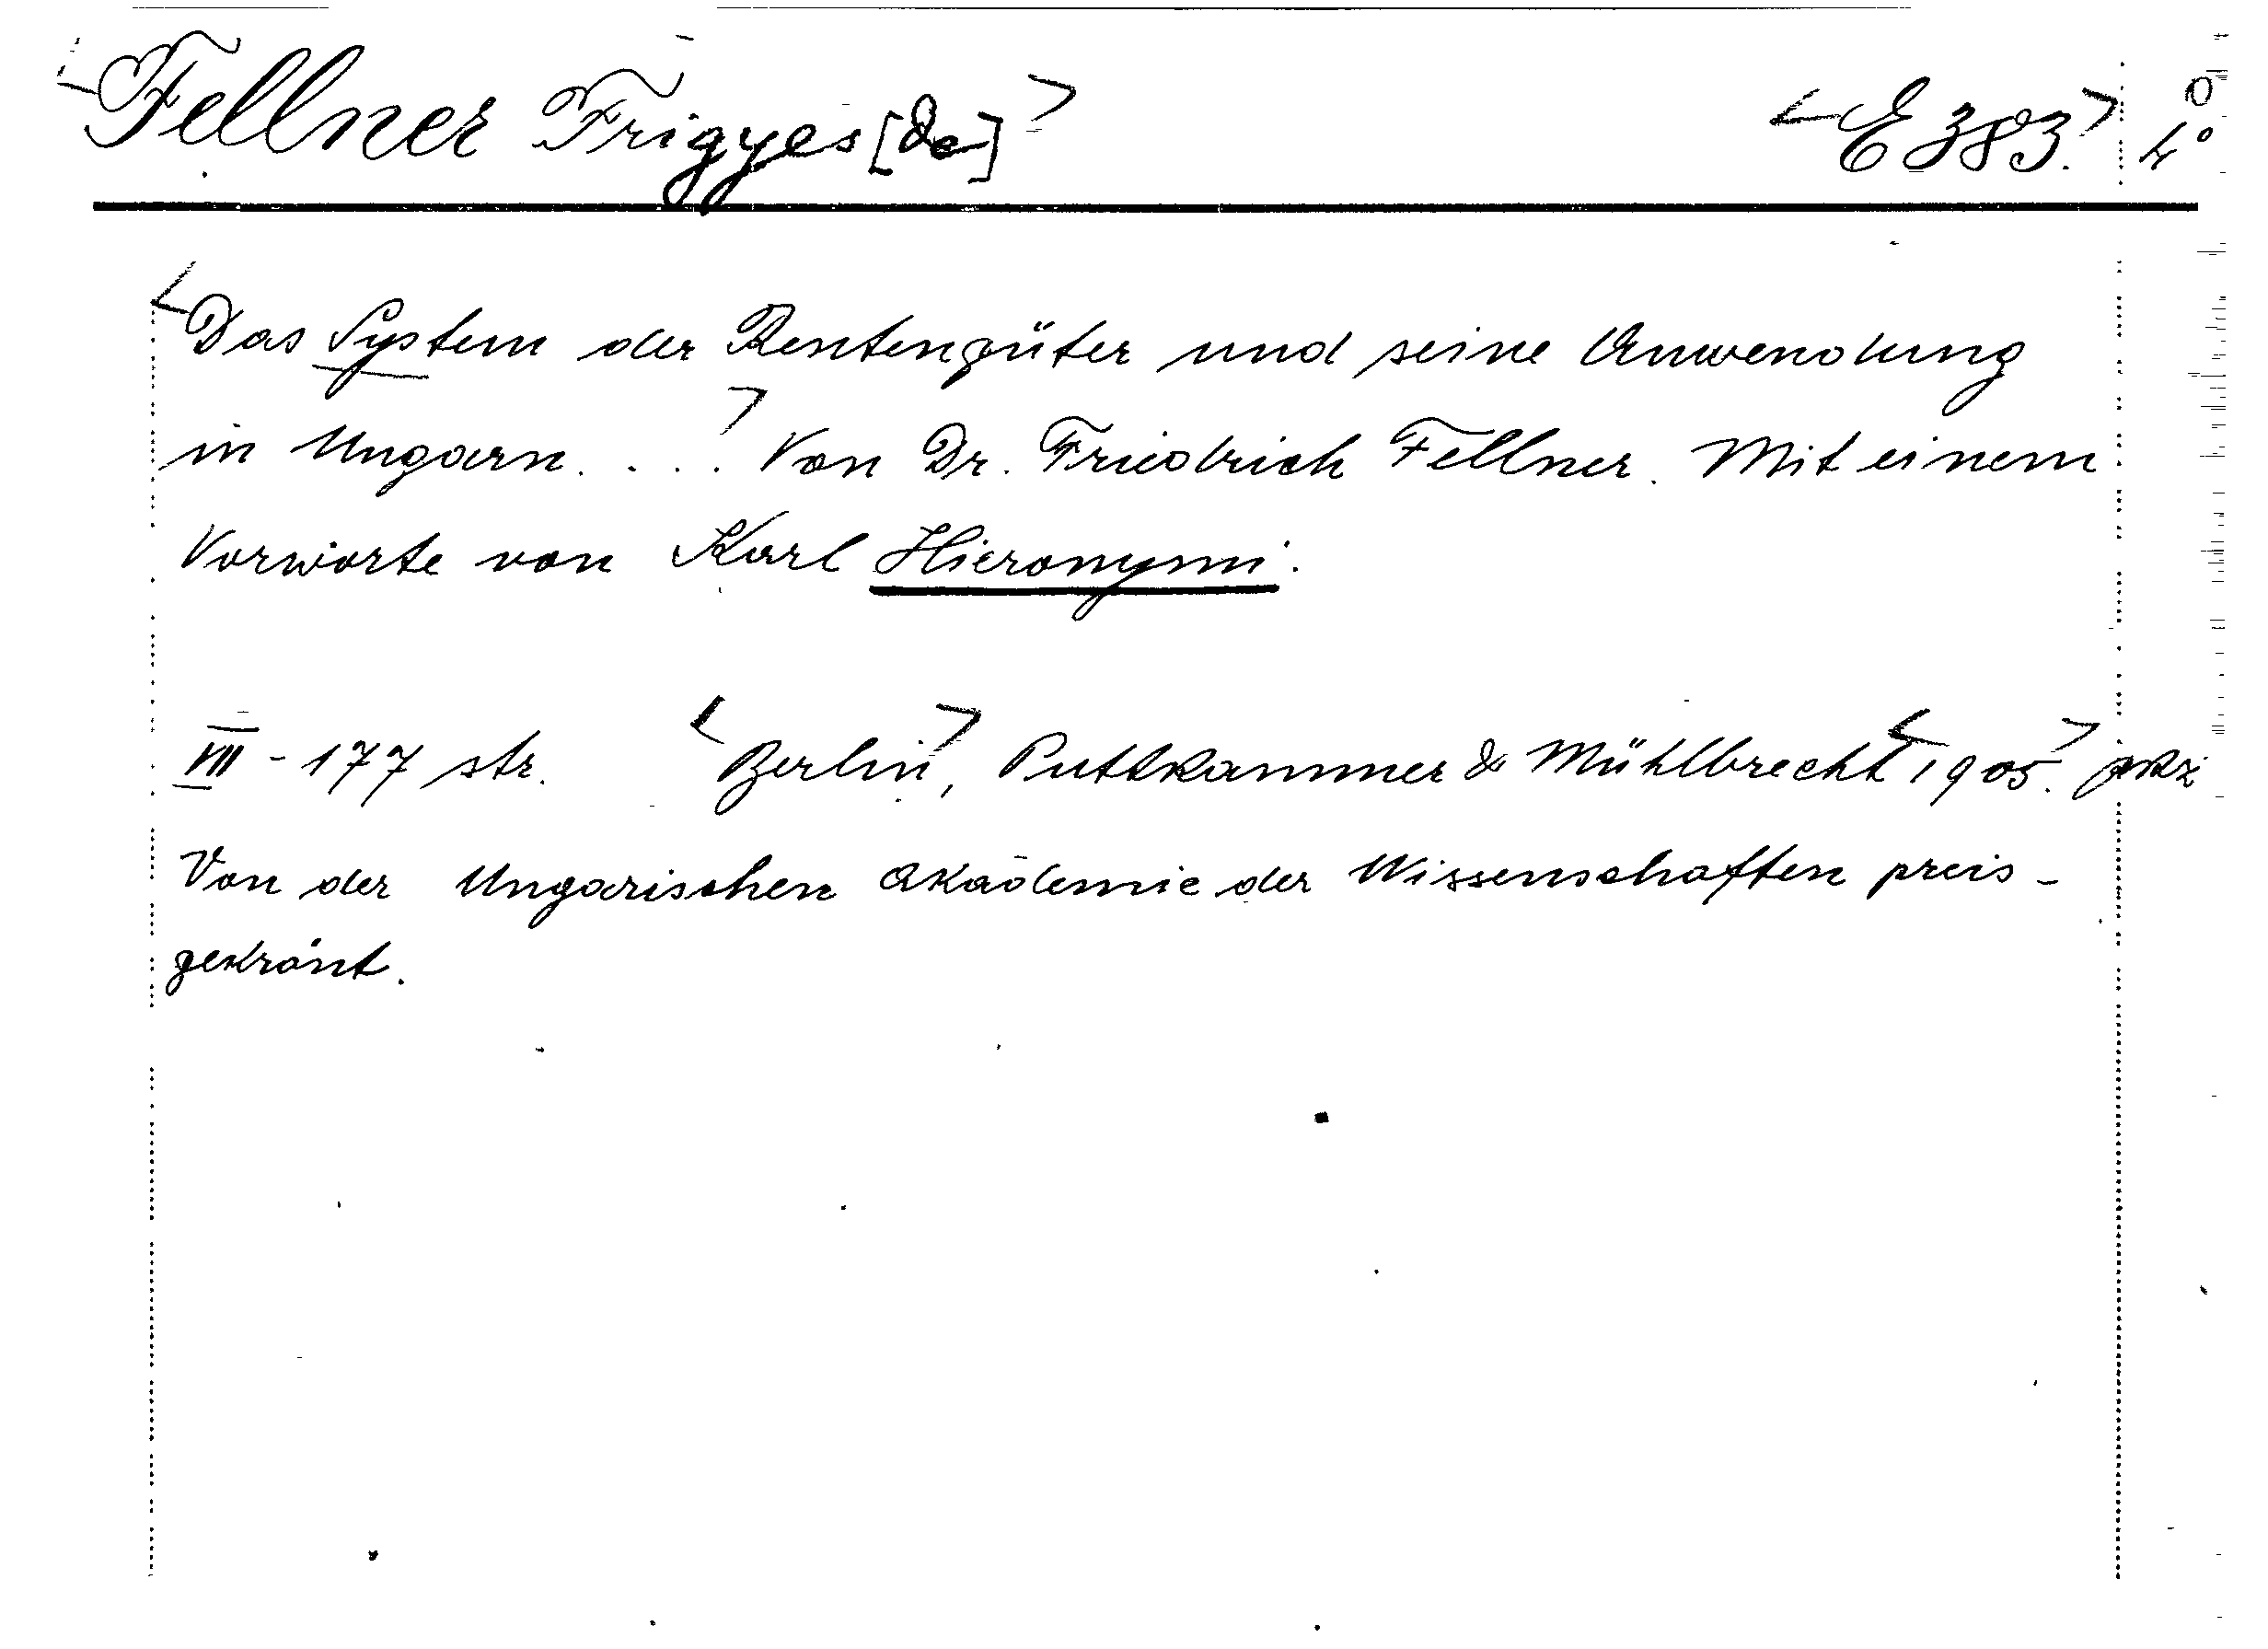 Fellner Frigyes [de] E 383. 4°
Das System der Rentengüter und seine Anwendung
in Ungarn. . . . Von Dr. Friedrich Fellner. Mit einem
Vorworte von Karl Hieronymi.
VII - 177 str. Berlin, Puttkammer & Mühlbrecht 1905.
Von der Ungarischen Akademie der Wissenschaften preis-
gekrönt.